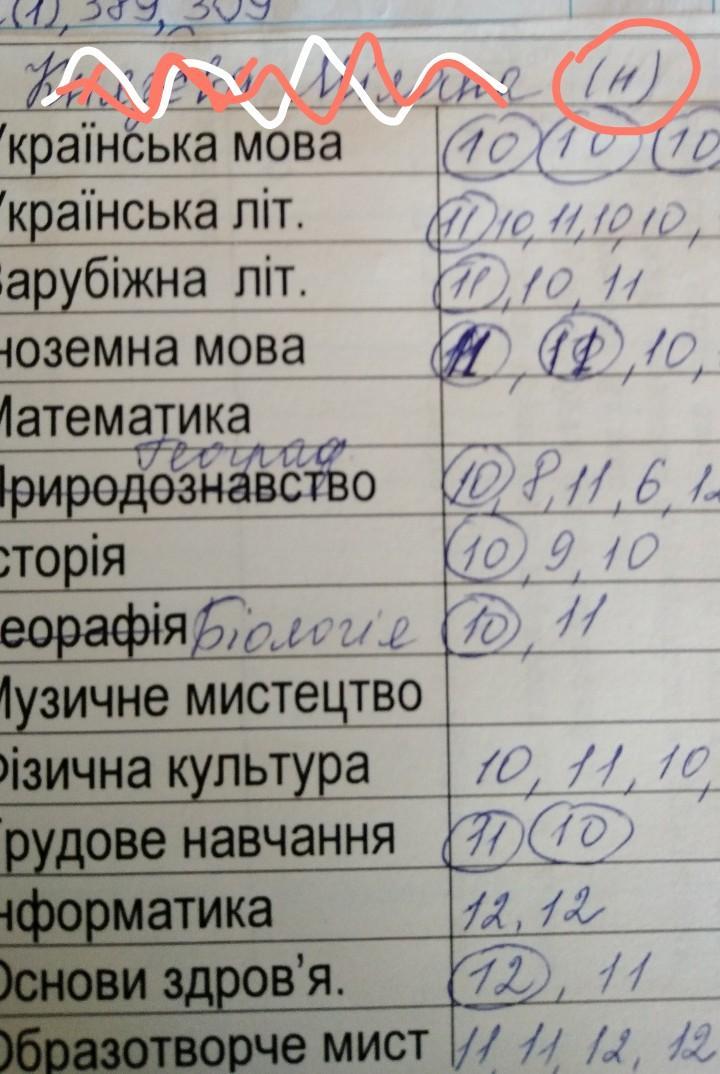 (1), 389, 309
(н)
Українська мова 10 10 10
Українська літ. 11 10, 11, 10, 10,
Зарубіжна літ. 11, 10, 11
ноземна мова 11, 11, 10,
Математика
Географ
Природознавство 10, 8, 11, 6, 12
сторія 10, 9, 10
еорафія Біологія 10, 11
Музичне мистецтво
Фізична культура 10, 11, 10,
Трудове навчання 11 10
нформатика 12, 12
Основи здров'я. 12, 11
Образотворче мист 11, 11, 12, 12